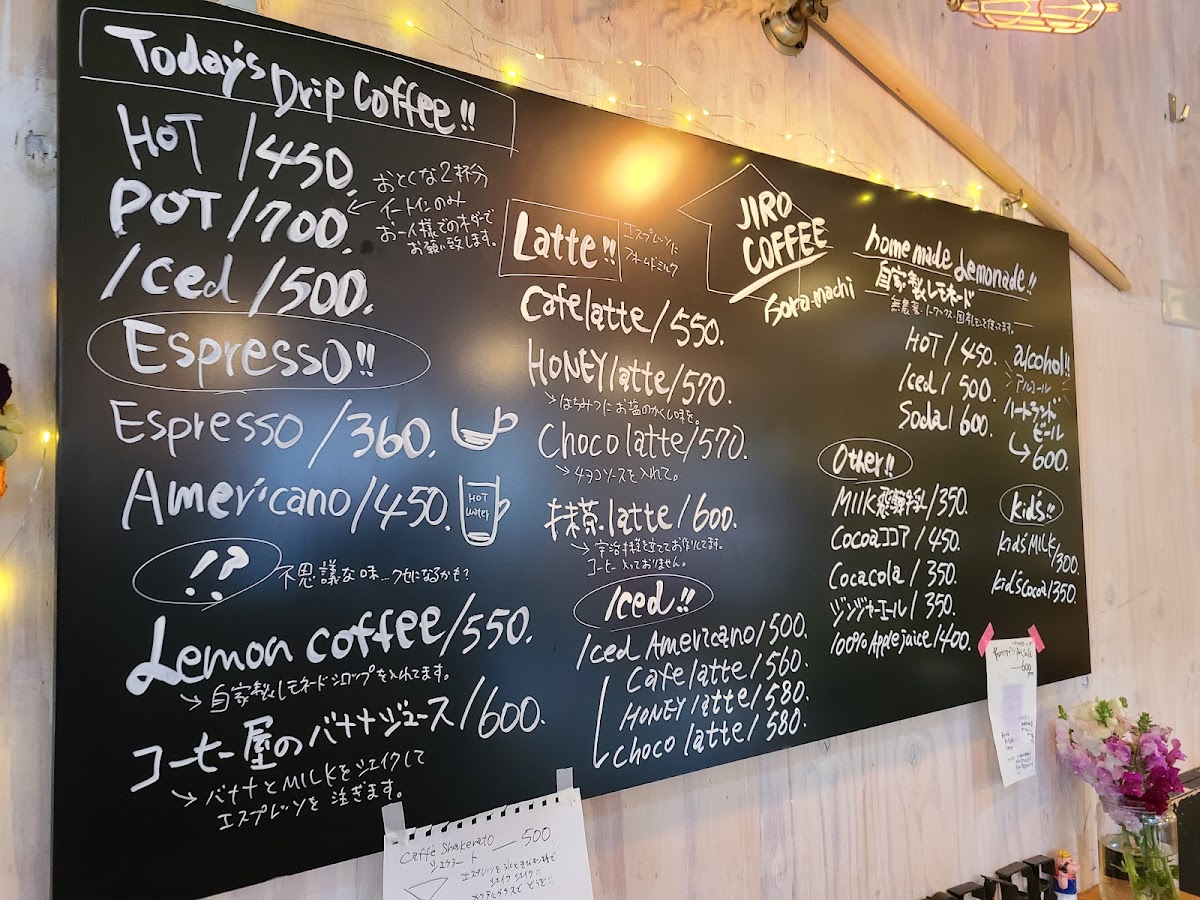 Today's Drip Coffee!!
HOT /450.
POT /700.
おとくな2杯分
イートインのみ
お一人様でのオーダーで
お願い致します。
Iced /500.
Espresso!!
Espresso /360.
Americano /450.
HOT
water
!?
不思議な味…クセになるかも?
Lemon coffee /550.
自家製レモネードシロップを入れてます。
コーヒー屋のバナナジュース /600.
バナナとMILKをシェイクして
エスプレッソを注ぎます。
Latte!!
エスプレッソに
フォームドミルク
Cafe latte / 550.
HONEY latte / 570.
はちみつにお塩のかくし味を。
Choco latte / 570.
チョコソースを入れて。
抹茶 latte / 600.
宇治抹茶を立ててお作りしてます。
コーヒー入っておりません。
Iced!!
Iced Americano / 500.
Cafe latte / 560.
HONEY latte / 580.
choco latte / 580.
JIRO
COFFEE
sora-machi
home made Lemonade!!
自家製レモネード
無農薬・ノーワックス・国産レモンを使ってます。
HOT / 450.
Iced / 500.
Soda / 600.
alcohol!!
アルコール
ハートランド
ビール
600.
Other!!
MILK 飛騨牛乳 / 350.
Cocoa ココア / 450.
Cocacola / 350.
ジンジャーエール / 350.
100% Apple juice / 400.
kid's!!
kid's MILK / 300.
kid's cocoa / 350.
Caffe Shakerato — 500.
シェケラート
エスプレッソを
シェイクシェイク!!
カクテルグラスでどうぞ!!
600